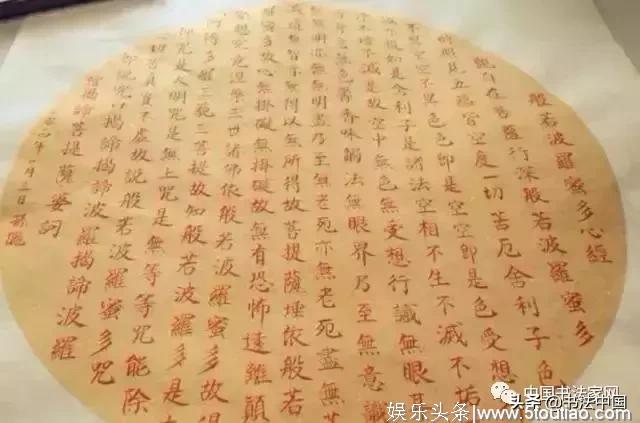 般若波羅蜜多心經
觀自在菩薩行深般若波羅蜜多
時照見五蘊皆空度一切苦厄舍利子色
不異空空不異色色即是空空即是色受想
復如是舍利子是諸法空相不生不滅不垢
不增不減是故空中無色無受想行識無眼耳
意無色聲香味觸法無眼界乃至無意識
無無明亦無無明盡乃至無老死亦無老死盡無
道無智亦無得以無所得故菩提薩埵依般若
蜜多故心無掛礙無掛礙故無有恐怖遠離顛
想究竟涅槃三世諸佛依般若波羅蜜多故得
阿耨多羅三藐三菩提故知般若波羅蜜多是
神咒是大明咒是無上咒是無等等咒能除
一切苦真實不虛故說般若波羅蜜多咒
即說咒曰揭諦揭諦波羅揭諦波羅
僧揭諦菩提薩婆訶
中国书法家网
头条@书法中国
娱乐头条/www.5toutiao.com